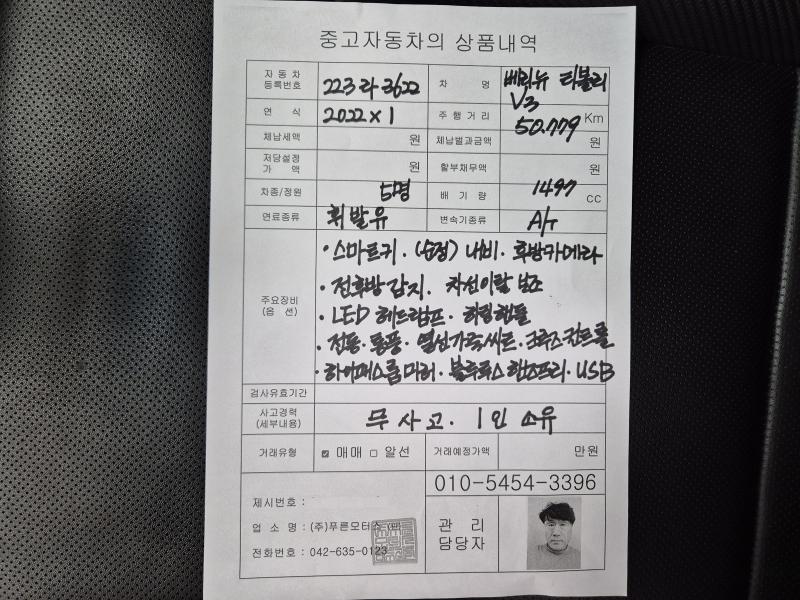 중고자동차의 상품내역
자동차 등록번호 223라3622 차 명 베리뉴 티볼리 V3
연 식 2022x1 주행거리 50.779 Km
체납세액 원 체납범과금액 원
저당설정 가 액 원 할부채무액 원
차종/정원 5명 배 기 량 1497 CC
연료종류 휘발유 변속기종류 A/T
주요장비 (옵 션)
· 스마트키. (순정) 내비. 후방카메라
· 전후방감지. 차선이탈 보조
· LED 헤드램프. 히팅핸들
· 전동. 통풍. 열선가죽씨트. 크루즈컨트롤
· 하이패스룸미러. 블루투스핸즈프리. USB
검사유효기간
사고경력 (세부내용) 무사고. 1인 소유
거래유형 매매 알선 거래예정가액 만원
010-5454-3396
제시번호 :
업 소 명 : (주)푸른모터스
전화번호 : 042-635-0123
관 리 담당자